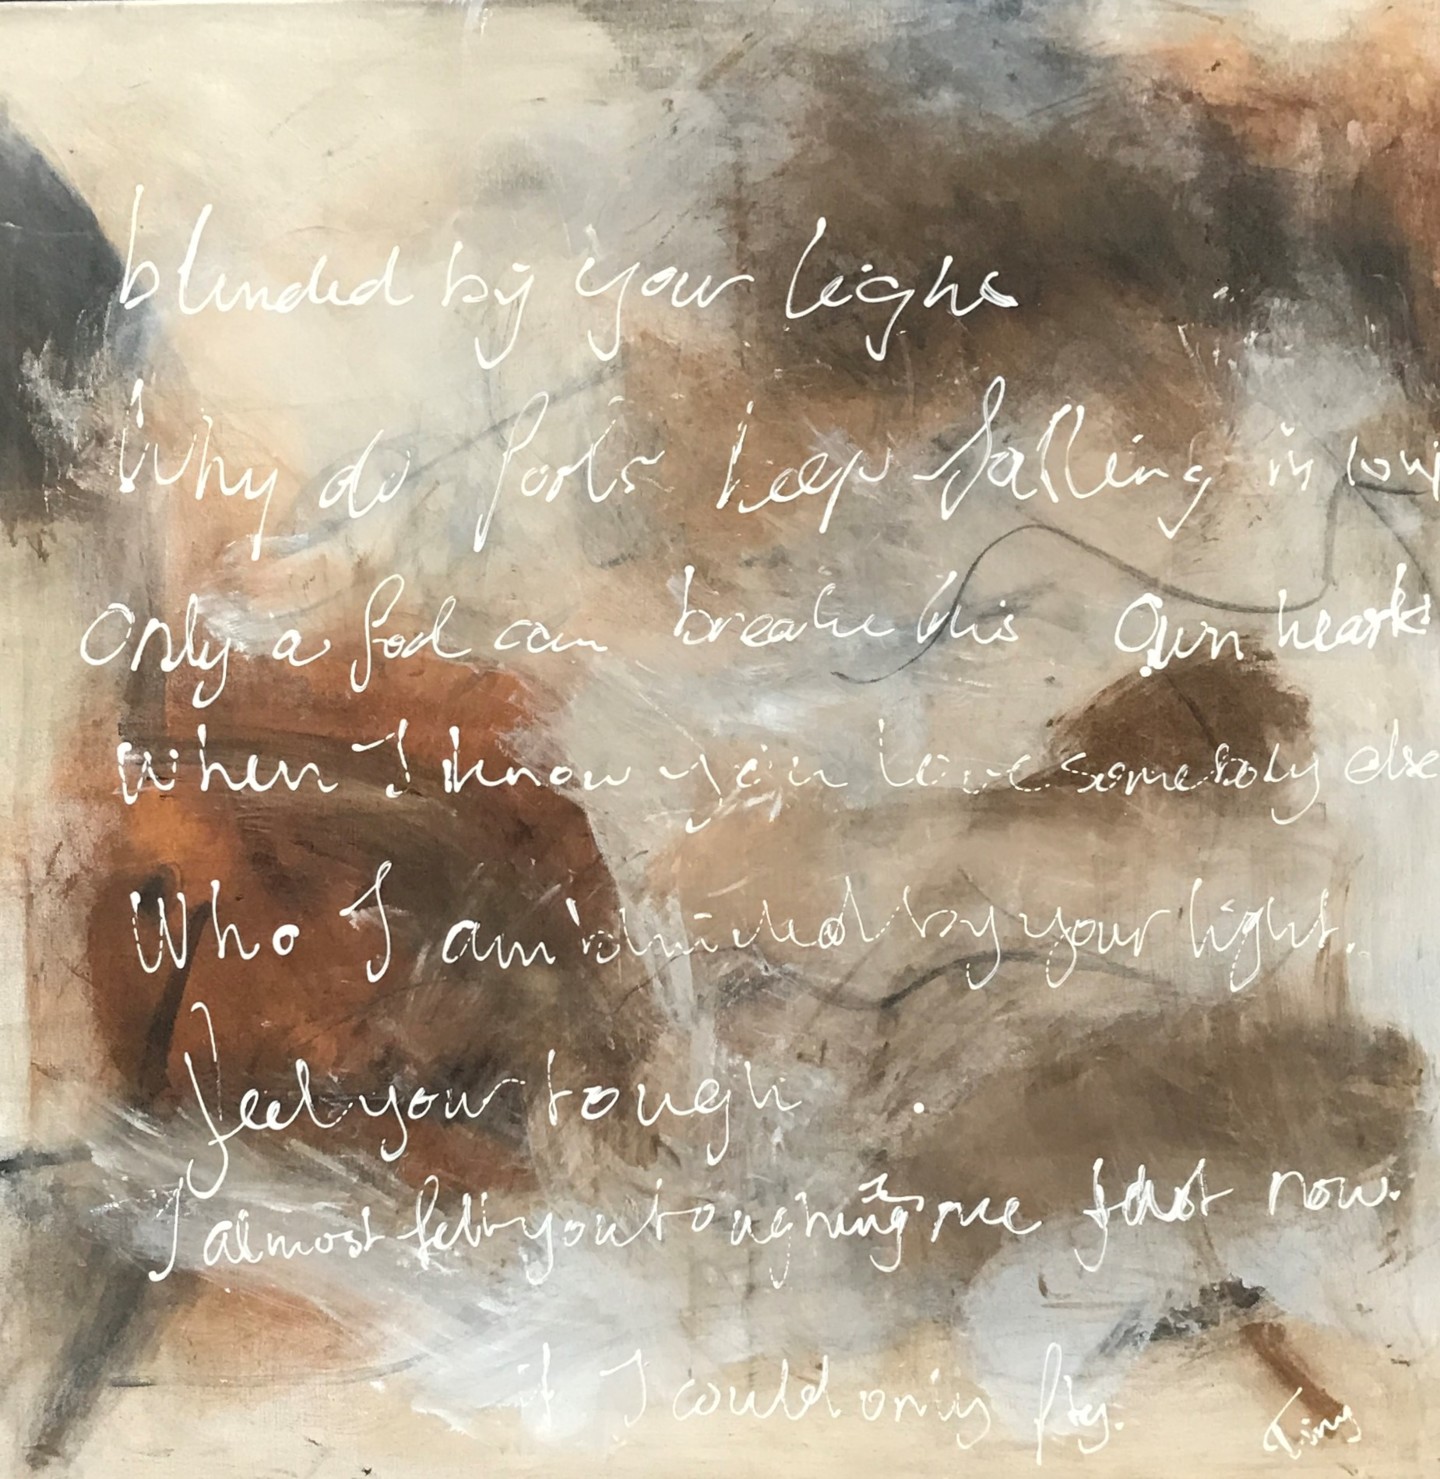 blinded by your light
Why do fools keep falling in love
Only a fool can breake his Own heart
When I know you love somebody else
Who I am blinded by your light.
feel your tough
I almost felt you toughing me just now.
if I could only fly.
Ting